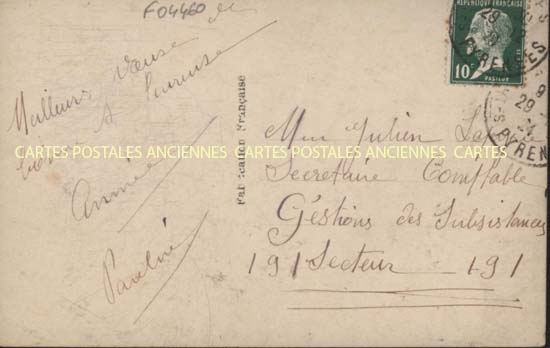 F04460
Meilleurs Vœux de
et
Heureuse
Année
Pauline
Fabrication Française
REPUBLIQUE FRANÇAISE
10c
PASTEUR
29
CARTES POSTALES ANCIENNES CARTES POSTALES ANCIENNES CARTES
Mr Julien
Secrétaire Comptable
Gestions des Subsistances
191 Secteur 191